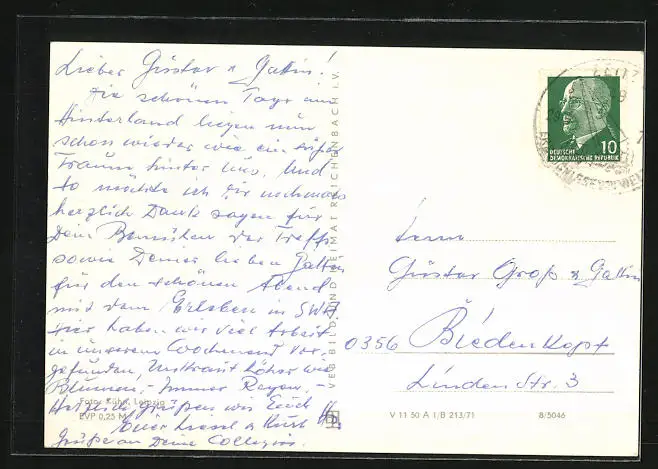 Lieber Gustav u. Gattin!
Die schönen Tage im
Hinterland liegen nun
schon wieder wie ein süßer
Traum hinter uns. Und
so möchte ich Dir nochmals
herzlich Dank sagen für
Dein Bemühen der Treffs
sowie Deiner lieben Gattin
für den schönen Abend
mit dem Erleben in
Hier haben wir viel Arbeit
in unserem Wochenend vor-
gefunden, Unkraut höher wie
Blumen. Immer Regen. –
Herzliche Grüße an Euch
Euer u. Kurt
Grüße an Deine Collegin.
Foto: Kühn, Leipzig
EVP 0,25 M
VEB BILD UND HEIMAT REICHENBACH I. V.
10
DEUTSCHE
DEMOKRATISCHE REPUBLIK
Herrn
Gustav Groß u. Gattin
0356 Biedenkopf
Linden Str. 3
V 11 50 A 1/B 213/71 8/5046